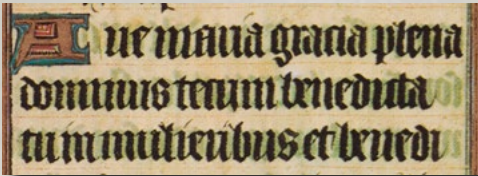 Aue maria gracia plena
dominus tecum benedicta
tu in mulieribus et benedi